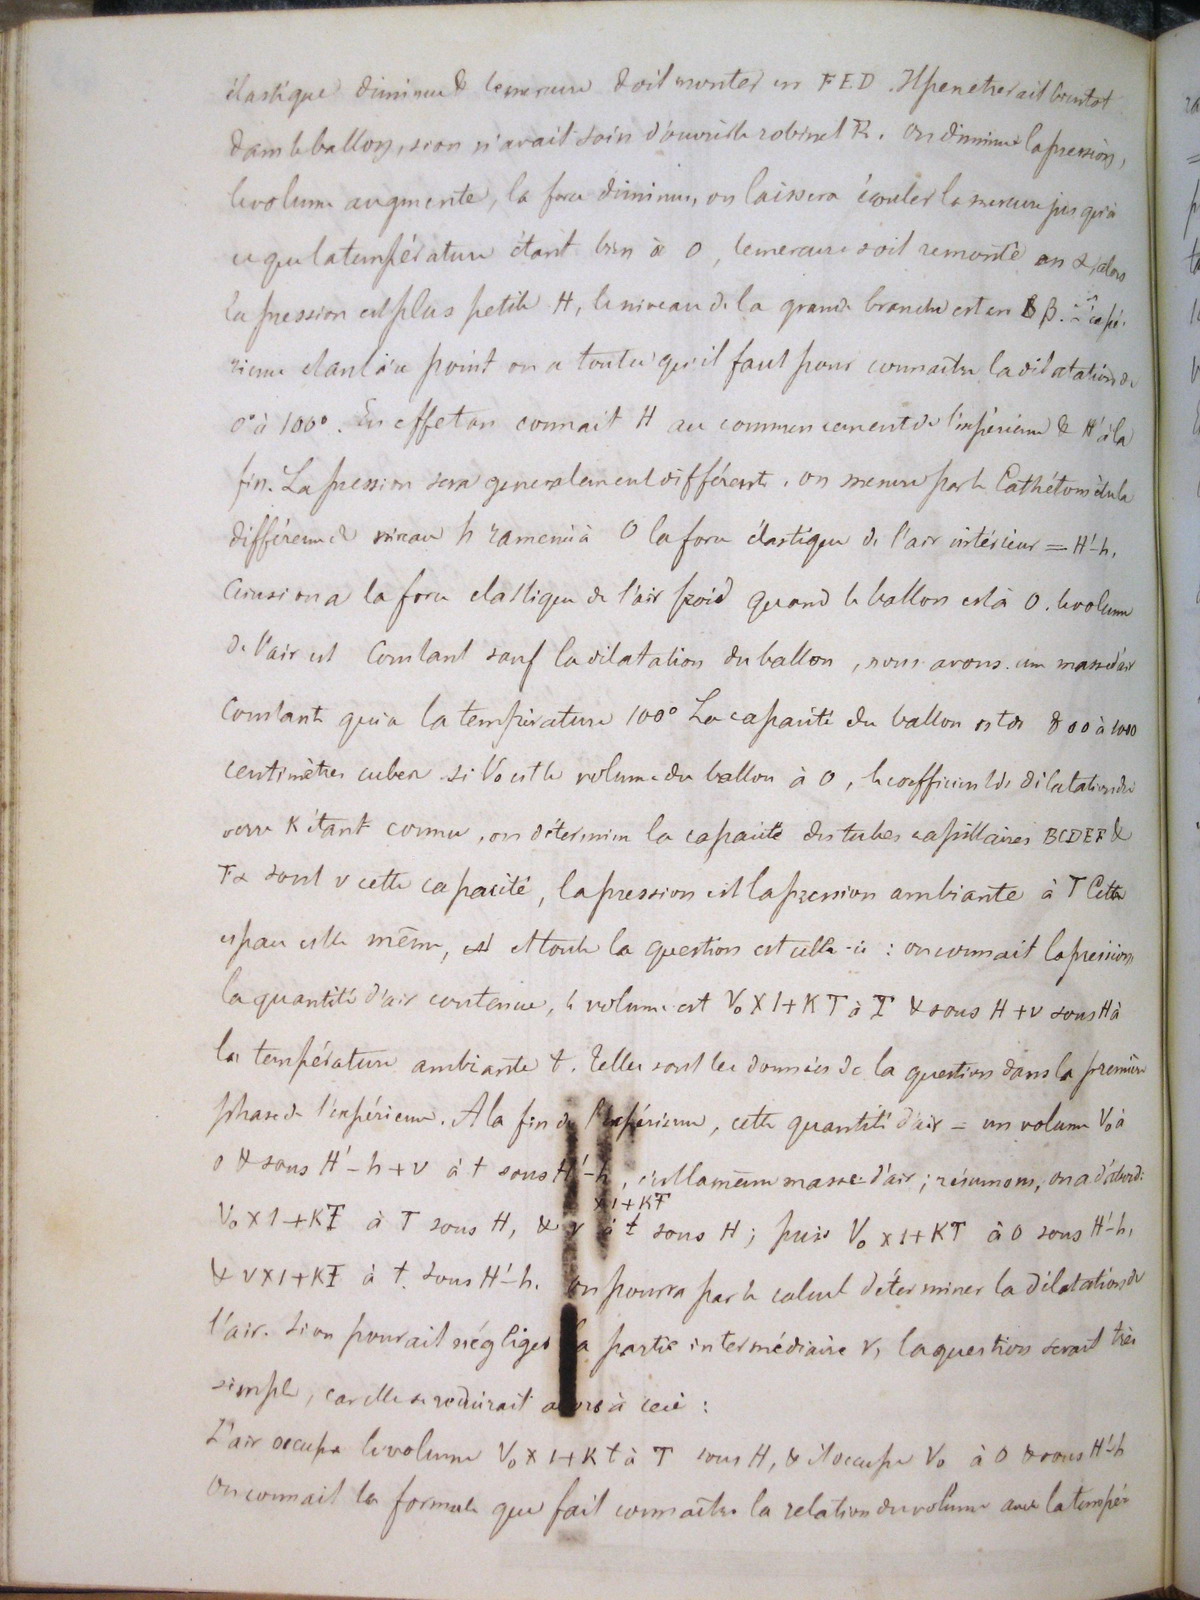 élastique diminue & le mercure doit monter en FED. Il penetrerait bientot
dans le ballon, si on n'avait soin d'ouvrir le robinet R. On diminue la pression,
le volume augmente, la force diminue, on laissera écouler le mercure jusqu'à
ce que la température étant bien à 0, le mercure soit remonté en α, alors
la pression est plus petite H, le niveau de la grande branche est en β. l'expé-
rience étant à ce point on a tout ce qu'il faut pour connaitre la dilatation de
0° à 100°. En effet on connait H au commencement de l'expérience & H' à la
fin. La pression sera generalement différente. on mesure par le Cathétomètre la
différence de niveau h ramenée à 0 la force élastique de l'air intérieur = H'-h.
Ainsi on a la force elastique de l'air froid quand le ballon est à 0. le volume
de l'air est Constant sauf la dilatation du ballon, nous avons une masse d'air
Constante qui a la température 100° La capacité du ballon est de 800 à 1000
centimètres cubes. si V₀ est le volume du ballon à 0, le coefficient de dilatation du
verre K étant connu, on détermine la capacité des tubes capillaires BCDEF &
Fα soit v cette capacité, la pression est la pression ambiante à T Cette
espace est le même, et toute la question est celle-ci : on connait la pression
la quantité d'air contenue, le volume est V₀ X 1+KT à T & sous H + v sous H à
la température ambiante t. Telles sont les données de la question dans la première
phase de l'expérience. A la fin de l'expérience, cette quantité d'air = un volume V₀ à
0 & sous H'-h + v à t sous H'-h, c'est la même masse d'air ; résumons, on a d'abord :
x 1+KT
V₀ x 1+KT à T sous H, & v à t sous H ; puis V₀ x 1+KT à 0 sous H'-h,
& v x 1+KT à t sous H'-h. on pourra par le calcul déterminer la dilatation de
l'air. Si on pouvait négliger la partie intermédiaire v, la question serait très
simple, car elle se reduirait alors à ceci :
L'air occupe le volume V₀ x 1+Kt à T sous H, & il occupe V₀ à 0 & sous H'-h
On connait la formule que fait connaitre la relation du volume avec la tempér